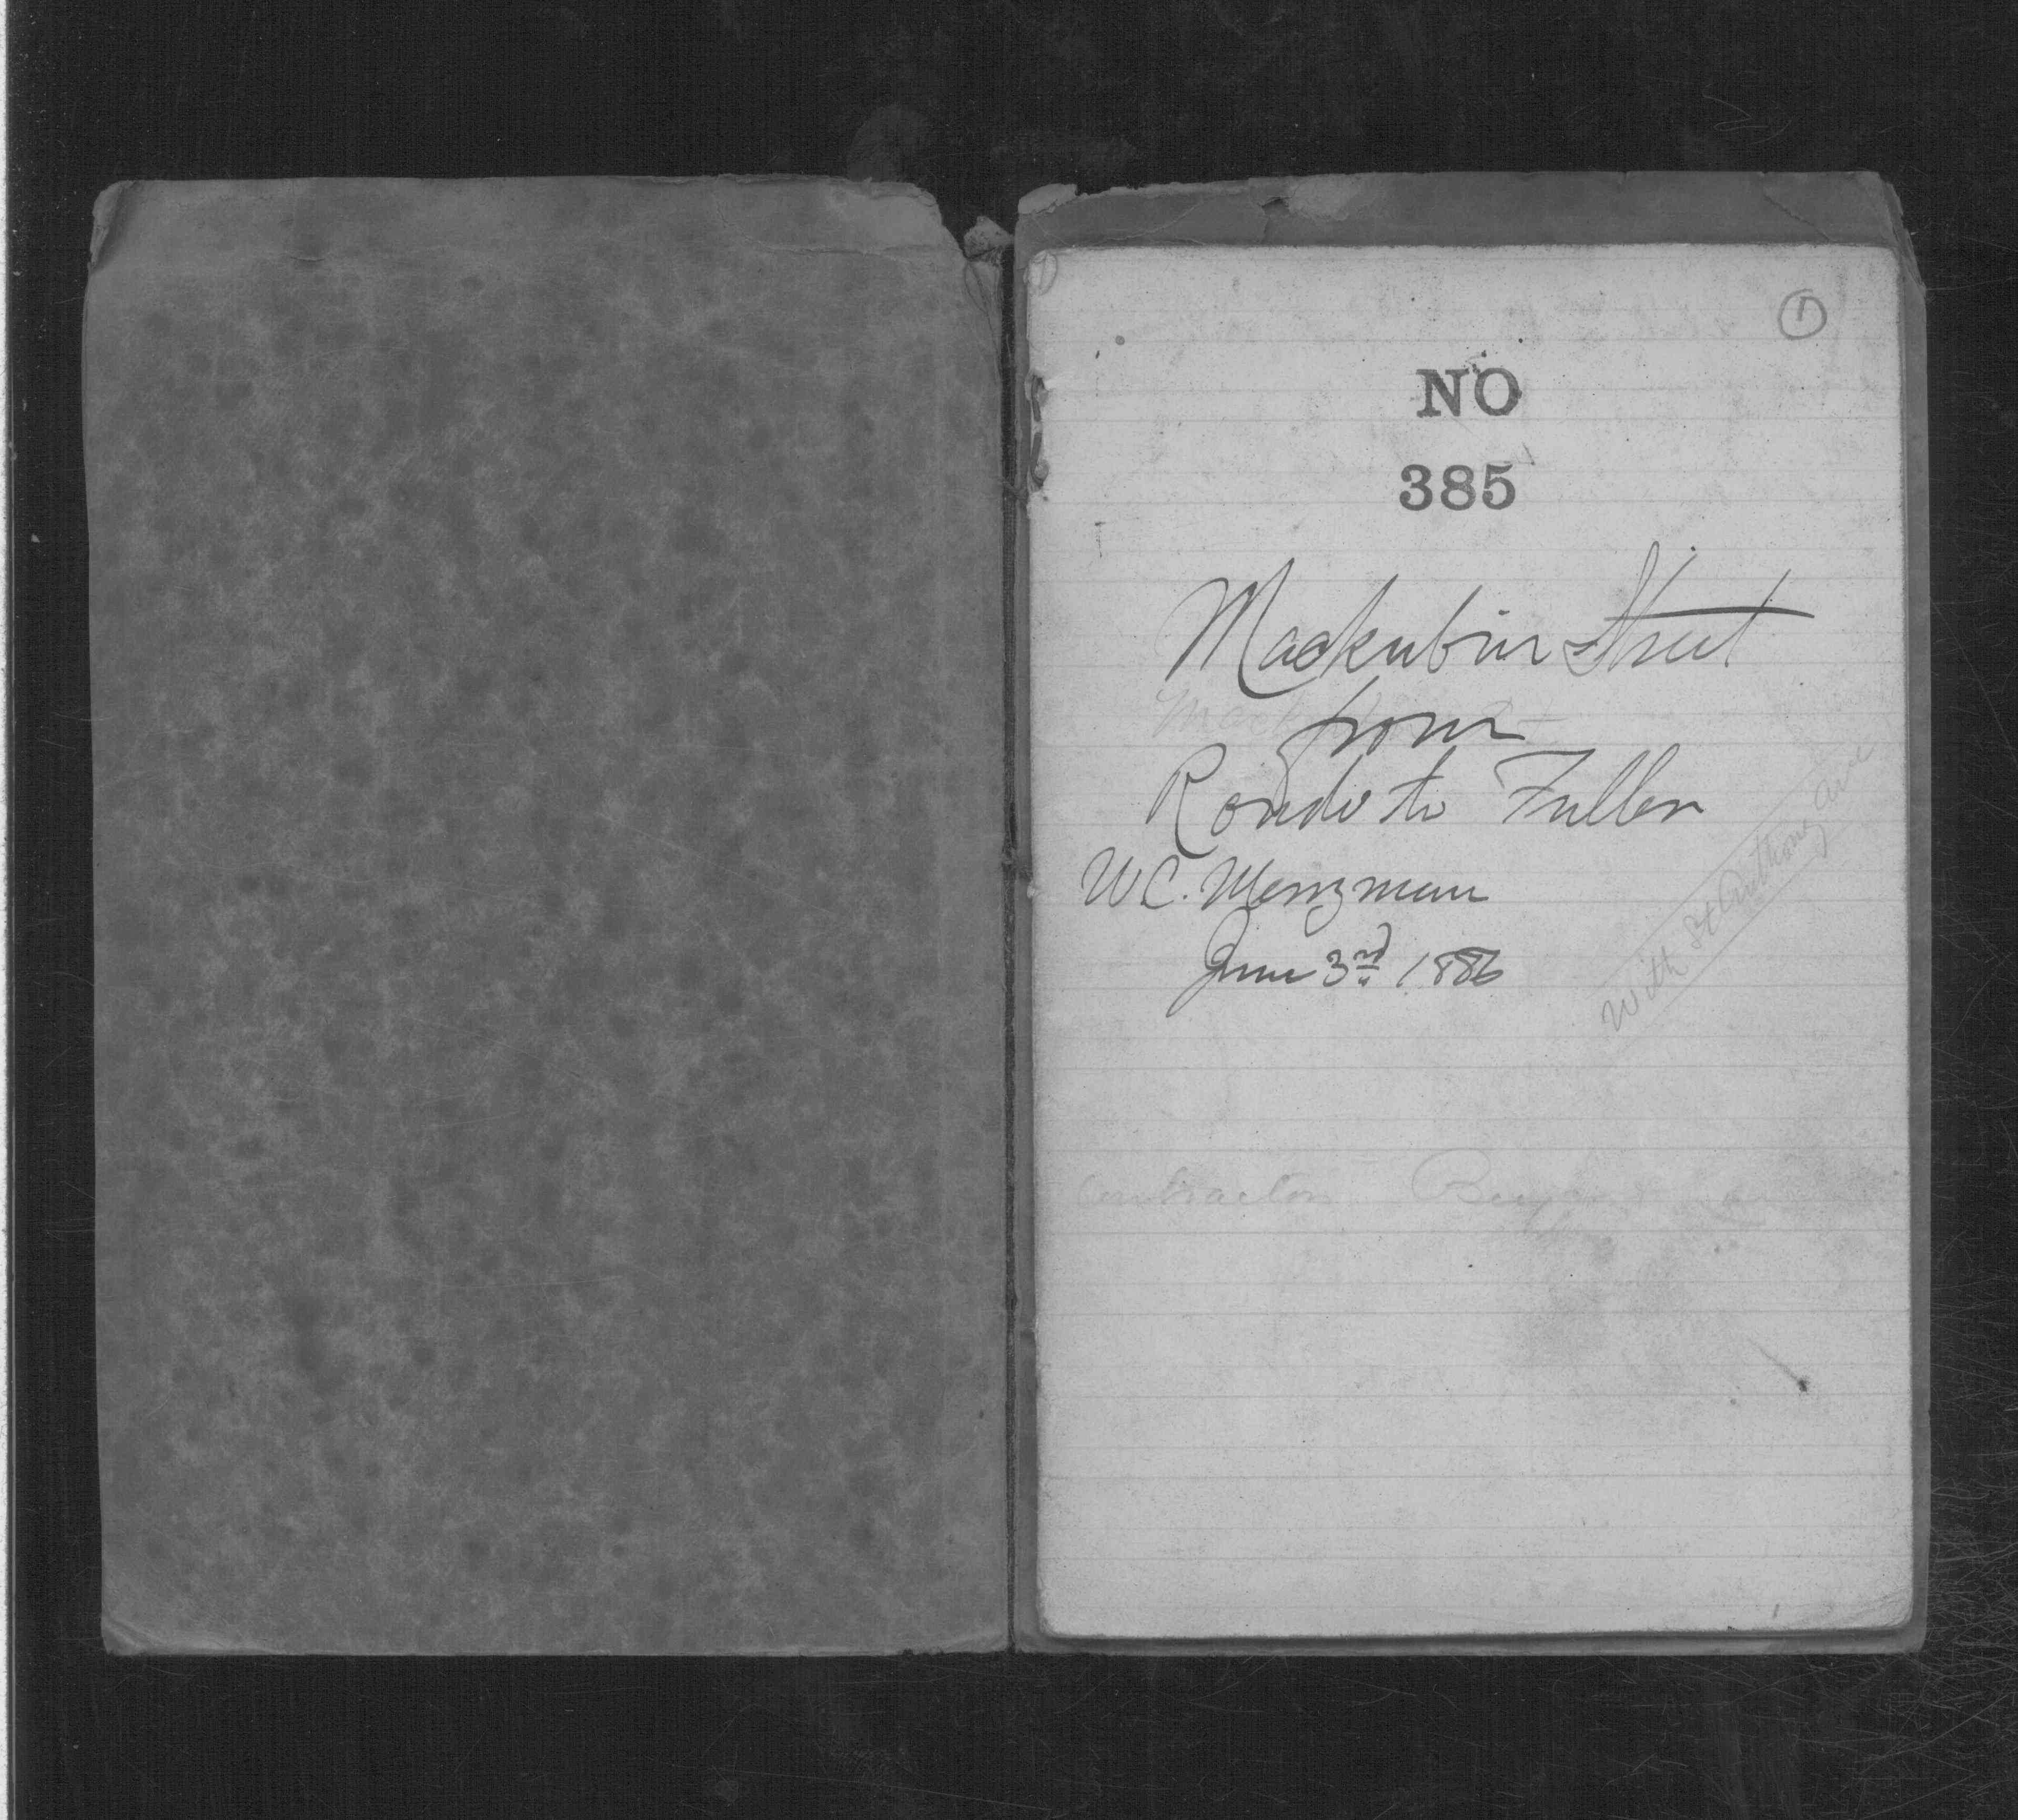 1
NO
385
Mackubin Street
from
Rondo to Fuller
W.C. Merryman
June 3rd 1886
With St Anthony ave
Contractor